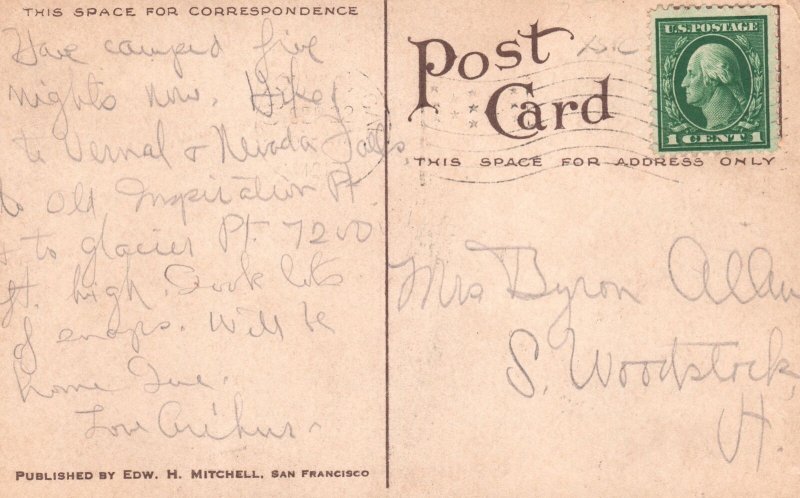 THIS SPACE FOR CORRESPONDENCE
Have camped five
nights now. Hiked
to Vernal & Nevada Falls
to Old Inspiration Pt.
+ to glacier Pt. 7200
ft. high. Took lots
of snaps. Will be
home Tue.
Love Arthur
PUBLISHED BY EDW. H. MITCHELL, SAN FRANCISCO
Post
Card
THIS SPACE FOR ADDRESS ONLY
U.S. POSTAGE
1 CENT 1
Mrs Byron Allen
S. Woodstock,
Vt.